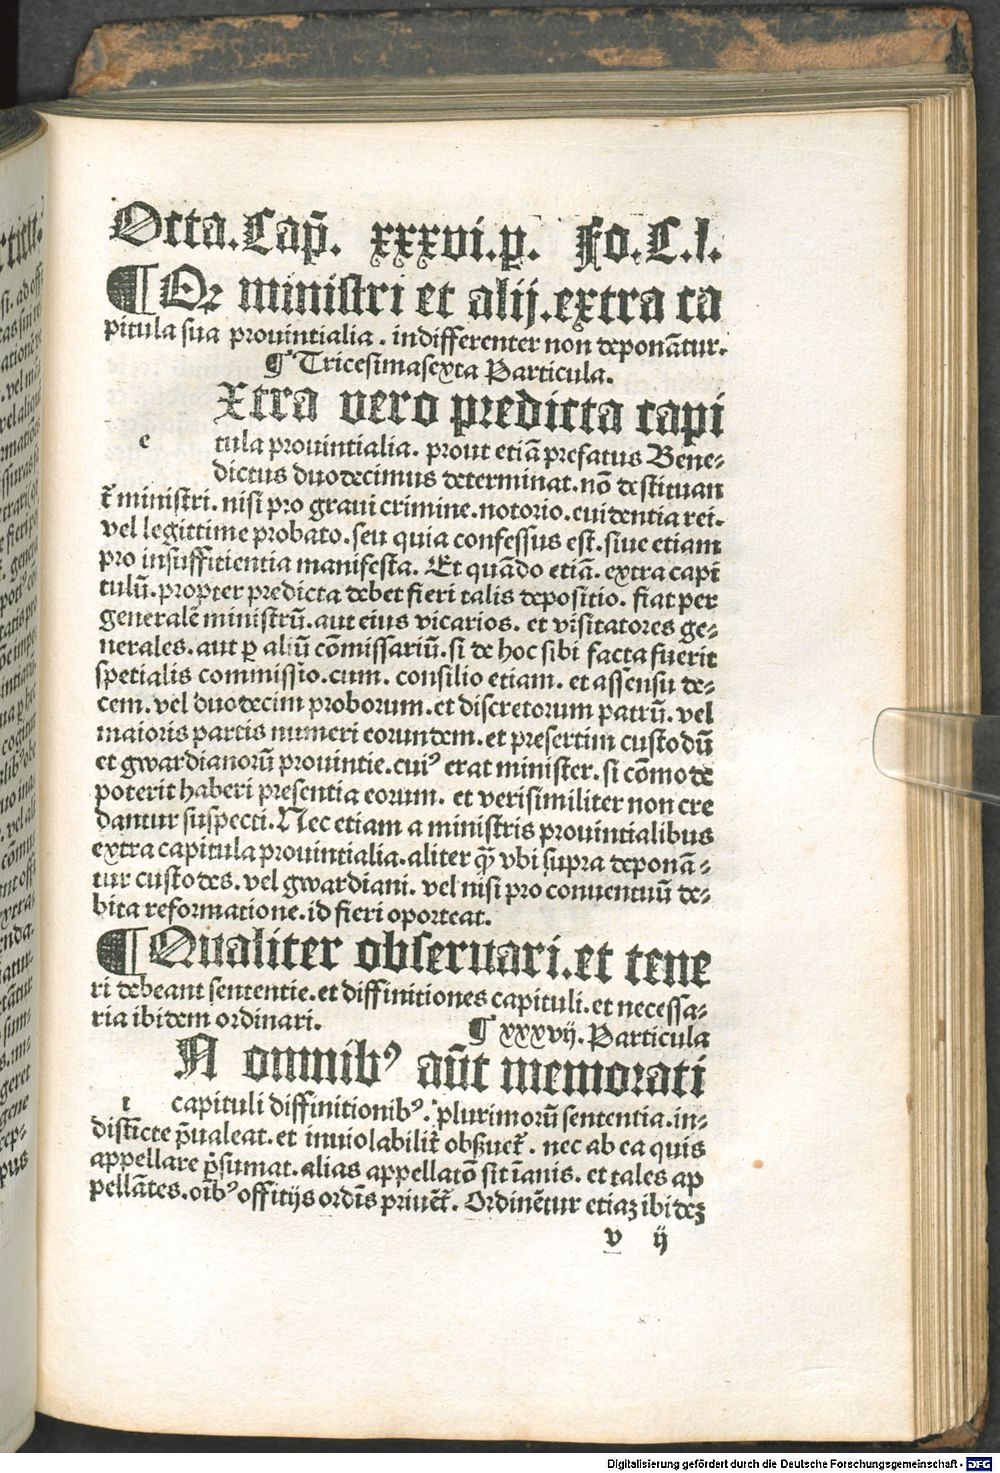 Octa.Cap̄. xxxvi.p. Fo.C.l.
¶Qꝛ ministri et alij.extra ca
pitula sua prouintialia. indifferenter non deponātur.
¶ Tricesimasexta Particula.
Xtra vero predicta capi
e tula prouintialia. prout etiā prefatus Bene⸗
dictus duodecimus determinat. nō destituan
t̄ ministri. nisi pro graui crimine. notorio. euidentia rei.
vel legittime probato. seu quia confessus est. siue etiam
pro insuffitientia manifesta. Et quādo etiā. extra capi
tulū. propter predicta debet fieri talis depositio. fiat per
generalē ministrū. aut eius vicarios. et visitatores ge⸗
nerales. aut ꝑ aliū cōmissariū. si de hoc sibi facta fuerit
spetialis commissio. cum. consilio etiam. et assensu de⸗
cem. vel duodecim proborum. et discretorum patrū. vel
maioris partis numeri eorundem. et presertim custodū
et gwardianorū prouintie. cuiꝰ erat minister. si cōmode
poterit haberi presentia eorum. et verisimiliter non cre
dantur suspecti. Nec etiam a ministris prouintialibus
extra capitula prouintialia. aliter q̄ꝫ vbi supra deponā⸗
tur custodes. vel gwardiani. vel nisi pro conuentuū de⸗
bita reformatione. id fieri oporteat.
¶Qualiter obseruari. et tene
ri debeant sententie. et diffinitiones capituli. et necessa⸗
ria ibidem ordinari. ¶ xxxvij. Particula
N omnibꝰ aūt memorati
i capituli diffinitionibꝰ. plurimorū sententia. in⸗
distīcte p̄ualeat. et inuiolabilit̄ obẜuet̄. nec ab ea quis
appellare p̄sumat. alias appellatō sit īanis. et tales ap
pellātes. oībꝰ offitijs ordīs priuēt̄. Ordinētur etiaꝫ ibideꝫ
v ij
Digitalisierung gefördert durch die Deutsche Forschungsgemeinschaft - DFG